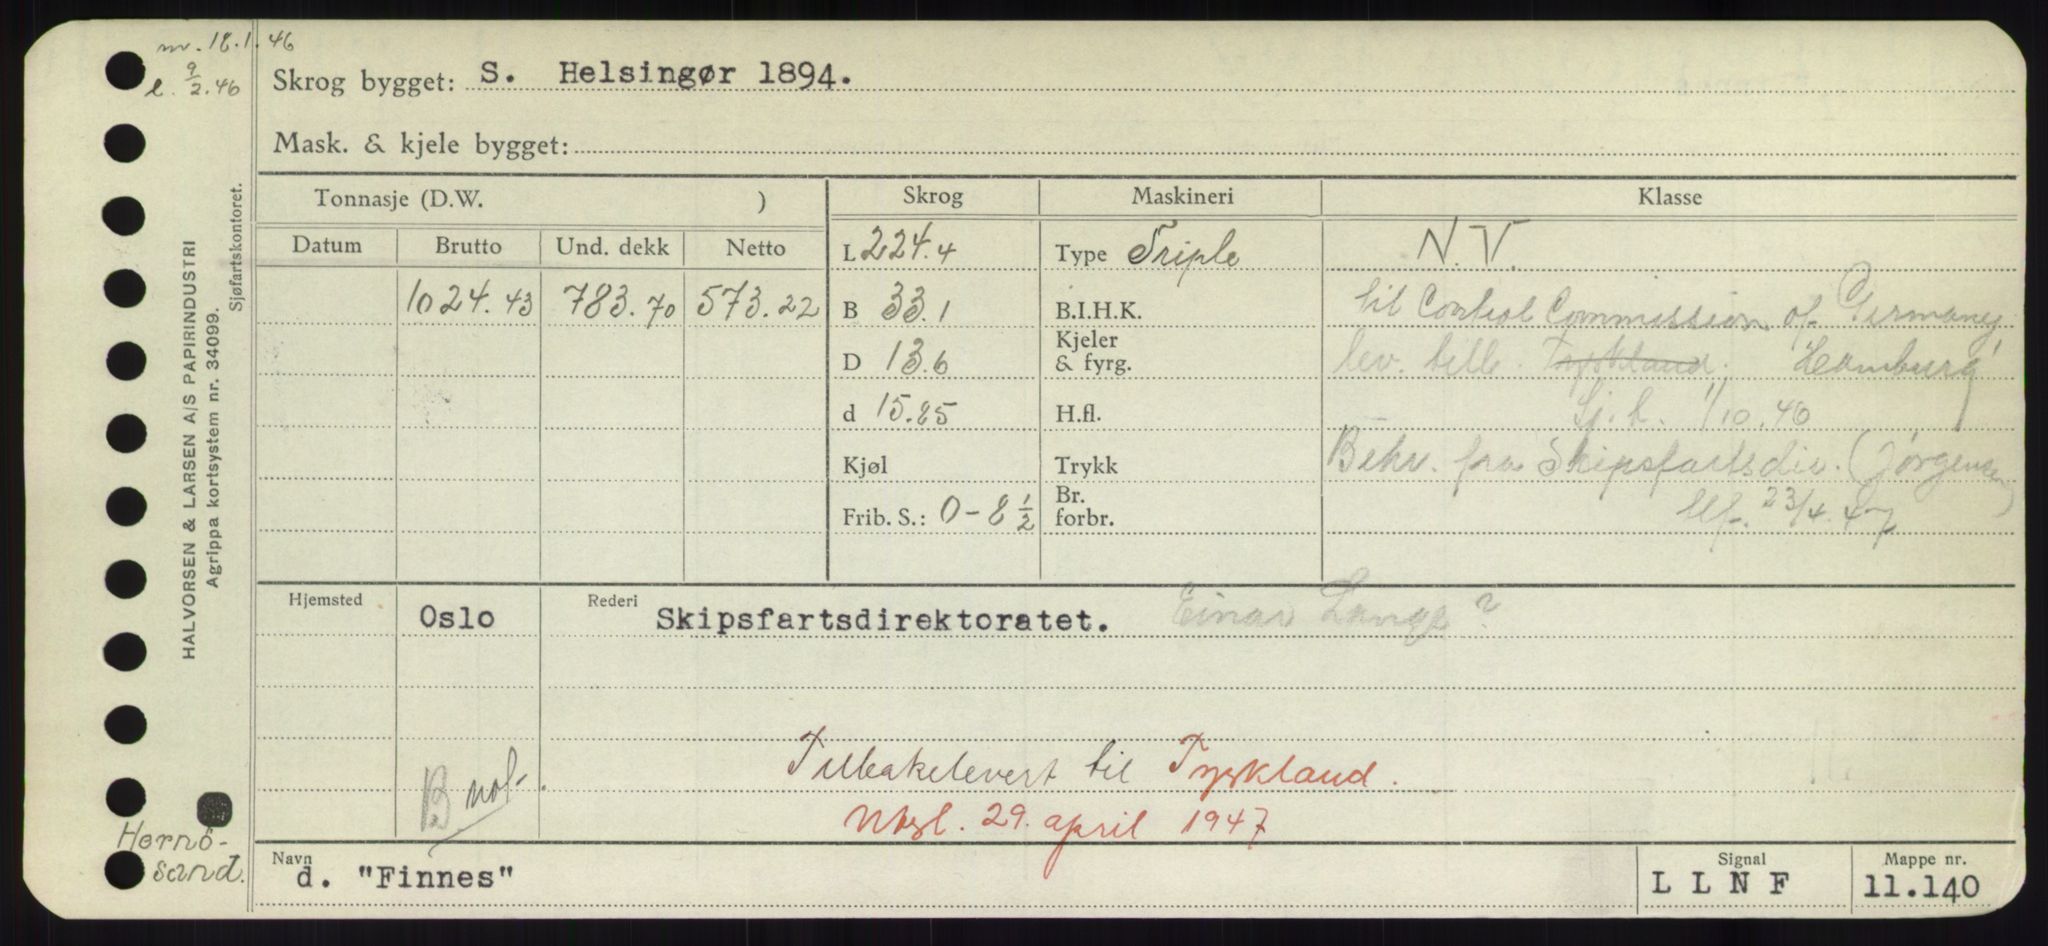 nv. 18.1.46
l. 9/2.46
Skrog bygget: S. Helsingør 1894.
Mask. & kjele bygget:
HALVORSEN & LARSEN A/S PAPIRINDUSTRI
Agrippa kortsystem nr. 34099.
Sjøfartskontoret.
Tonnasje (D.W. ) Skrog Maskineri Klasse
Datum Brutto Und. dekk Netto
L 224.4 Type Triple N.V.
1024.43 783.70 573.22 B 33.1 B.I.H.K. til Control Commission of Germany,
D 13.6 Kjeler & fyrg. lev. Tyskland. Hamburg
d 15.25 H.fl. 1/10.46
Kjøl Trykk Bekr. fra Skipsfartsdir. (Jørgensen)
Frib. S.: 0-8½ Br. forbr. tlf. 23/4.47
Hjemsted Oslo Rederi Skipsfartsdirektoratet. Einar Lange?
Tilbakelevert til Tyskland.
B not.
Nbgl. 29. april 1947
Hernö-
sand.
Navn d. "Finnes" Signal L L N F Mappe nr. 11.140